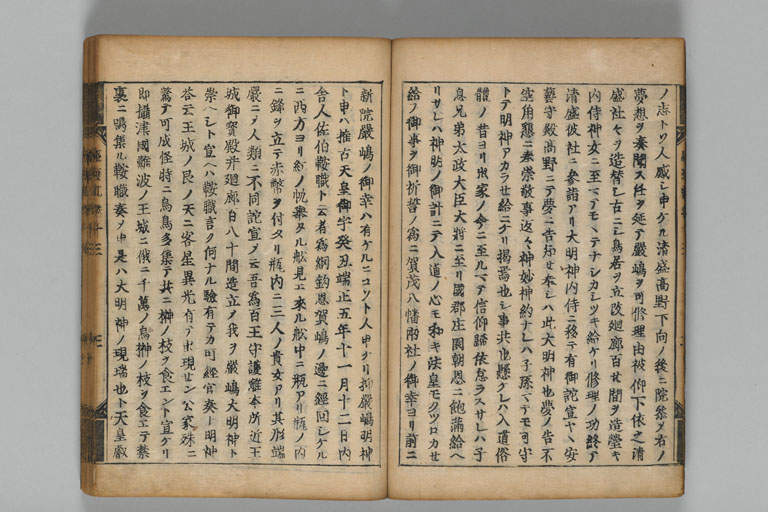 ノ志トソ人感シ申ケル清盛高野下向ノ後ニ院参ヲ右ノ
夢想ヲ奏聞ス任ヲ延テ厳嶋ヲ可修理由被仰下依之清
盛社々ヲ造替シ古ニシ鳥居ヲ立改廻廊百廿間ヲ造瑩キ
内侍神女ニ至マテモヽテナシカシツキ給ケリ修理ノ功終テ
清盛彼社ニ参詣アリ大明神内侍ニ移テ有御詫宣ヤヽ安
藝守殿高野ニテ夢ニ告知セ奉シハ此大明神也夢ノ告不
空角懇ニ奉崇敬事返々神妙神約ナレハ子孫マテモ可守
トテ明神アカラセ給ニケリ掲焉也シ事共也懸クレハ入道俗
體ノ昔ヨリ出家ノ今ニ至ルマテ信仰歸依怠ラスサレハ子
息兄弟太政大臣大將ニ至リ國郡庄園朝恩ニ飽滿給ヘ
リサレハ神明ノ御計ニテ入道ノ心モ和キ法皇モクツロカセ
給フ御事ヲ御祈誓ノ為ニ賀茂八幡兩社ノ御幸ヨリ前ニ
新院嚴嶋ノ御幸ハ有ケルニコソト人申ケリ抑嚴嶋明神
ト申ハ推古天皇御宇癸丑端正五年十一月十二日内
舎人佐伯鞍職ト云者為網釣恩賀嶋ノ邊ニ經回シケル
ニ西方ヨリ紅ノ帆擧タル舩見エ來ル舩中ニ瓶アリ瓶ノ内
ニ鋒ヲ立テ赤幣ヲ付タリ瓶内ニ三人ノ貴女アリ其形端
嚴ニメ人類ニ不同詫宣ノ云吾為百王守護離本所近王
城御寳殿并廻廊百八十間造立メ我ヲ嚴嶋大明神ト
崇ヘシト宣ヘハ鞍職言ク何ナル驗有テカ可經官奏ト明神
荅云王城ノ艮ノ天ニ客星異光有テ出現セン公家殊ニ
驚テ可成怪時ニ烏鳥多集テ共ニ榊ノ枝ヲ食エント宣ケリ
即攝津國難波ノ王城ニ俄ニ千萬ノ烏榊ノ枝ヲ食エテ禁
裏ニ鳴集ル鞍職奏ノ申是ハ大明神ノ現瑞也ト天皇叡